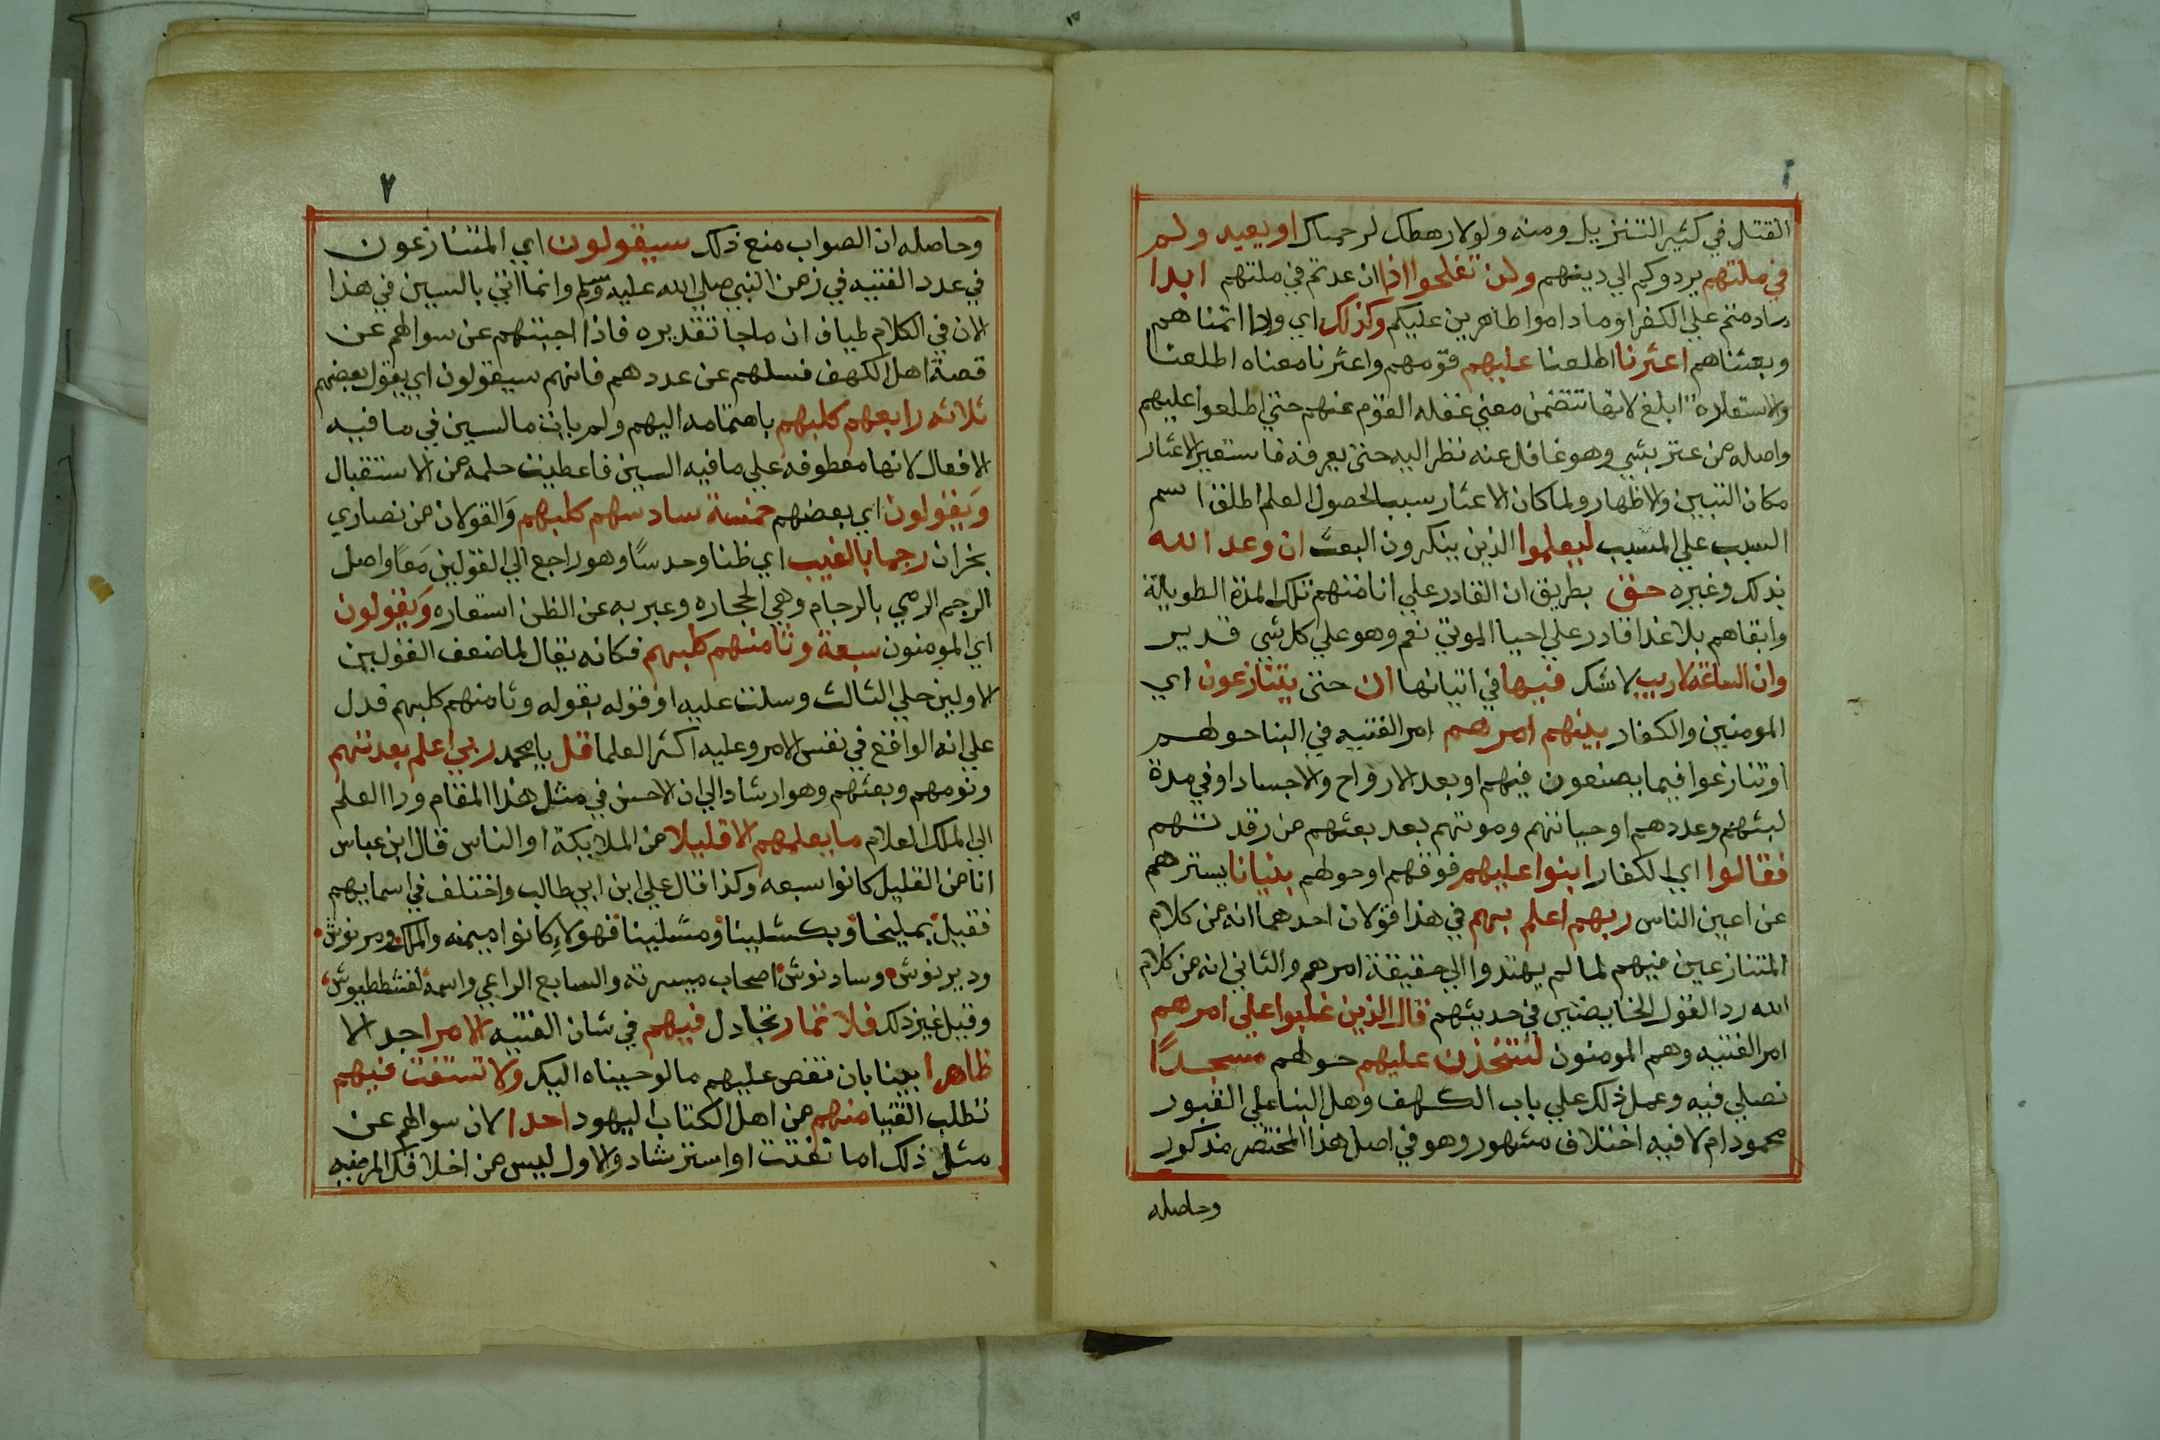 القتل في كثير التنزيل ومنه ولولا رهطك لرجمناك او يعيدولم
في ملتهم يردوكم الي دينهم ولن تفلحوا اذا ان عدتم في ملتهم ابدا
مادمتم علي الكفر او ما داموا ظاهرين عليكم وكذلك اي وكما انمناهم
وبعثناهم اعثرنا اطلعنا عليهم قومهم واعثرنا معناه اطلعنا
والاستعاره ابلغ لانها تتضمن معني غفله القوم عنهم حتي اطلعوا عليهم
واصله من عثر بشي وهو غافل عنه نظر اليه حتي يعرفه فاستعير الاعثار
مكان التبيين والاظهار ولما كان الاعثار سببا لحصول العلم اطلق اسم
السبب علي المسبب ليعلموا الذين ينكرون البعث ان وعد الله
بذلك وغيره حق بطريق ان القادر علي انامتهم تلك المدة الطويلة
وابقاهم بلا غذا قادر علي احيا الموتي نعم وهو علي كل شي قدير
وان الساعة لاريب لاشك فيها في اتيانها ان حتي يتنازعون اي
المومنين والكفار بينهم امرهم امر الفتيه في البنا حولهم
او تنازعوا فيما يصنعون فيهم او بعد الارواح والاجساد او في مدة
لبثهم وعددهم او حياتهم وموتهم بعد بعثهم من رقدتهم
فقالوا اي الكفار ابنوا عليهم فوقهم او حولهم بنيانا يسترهم
عن اعين الناس ربهم اعلم بهم في هذا قولان احدهما انه من كلام
المتنازعين فيهم لما لم يهتدوا الي حقيقة امرهم والثاني انه من كلام
الله رد القول الخايضين في حديثهم قال الذين غلبوا علي امرهم
امر الفتيه وهم المومنون لنتخذن عليهم حولهم مسجدًا
نصلي فيه وعمل ذلك علي باب الكهف وهل البنا علي القبور
محمود ام لا فيه اختلاف مشهور وهو في اصل هذا المختصر مذكور
وحاصله
٧
وحاصله ان الصواب منع ذلك سيقولون اي المتنازعون
في عدد الفتيه في زمن النبي صلي الله عليه وسلم وانما اتي بالسين في هذا
لان في الكلام طيا ف ان ما جا تقديره فاذا اجبتهم عن سوالهم عن
قصة اهل الكهف فسلهم عن عددهم فانهم سيقولون اي يقول بعضهم
ثلاثه رابعهم كلبهم باهتمامه اليهم ولم يات مالسين في ما فيه
الافعال لانها معطوفه علي ما فيه السين فاعطيت حكمه من الاستقبال
وَيقولون اي بعضهم خمسة سادسهم كلبهم وَالقولان من نصاري
نجران رجما بالغيب اي ظنا وحدسًا وهو راجع الي القولين مَعًا واصل
الرجم الرمي بالرجام وهي الحجاره وعبر به عن الظن استعاره وَيقولون
اي المومنون سبعة وثامنهم كلبهم فكانه يقال لما ضعف القولين
الاولين علي الثالث وسلت عليه او قوله بقوله وثامنهم كلبهم فدل
علي انه الواقع في نفس الامر وعليه اكثر العلما قل يا محمد ربي اعلم بعدتهم
ونومهم وبعثهم وهو ارشاد الي ان الاحسن في مثل هذا المقام ورا العلم
الي الملك العلام ما يعلمهم الا قليلا من الملايكة او الناس قال ابن عباس
انا من القليل كانوا سبعه وكذا قال علي ابن ابي طالب واختلف في اسمايهم
فقيل يمليخا وبكسلينا ومسلينا فهولاءِ كانوا ميمنه والملك ومرنوش
ودبرنوش وسادنوش اصحاب ميسرته والسابع الراعي واسمه لفشططيوش
وقيل غير ذلك فلا تمار تجادل فيهم في شان الفتيه الا مرا جدالا
ظاهرا بينا بان تقص عليهم ما اوحيناه اليك ولا تستفت فيهم
تطلب الفتيا منهم من اهل الكتاب اليهود احدا لان سوالهم عن
مثل ذلك اما تعنت او استرشاد والاول ليس من اخلاقك المرضيه